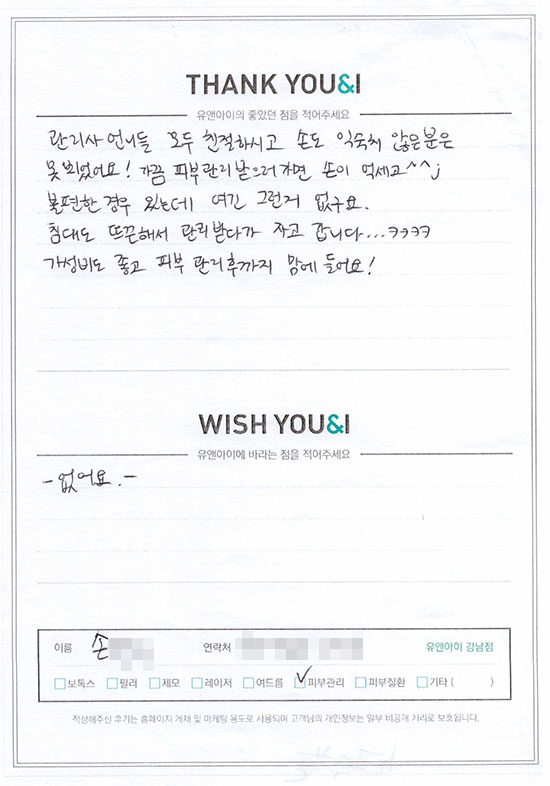 THANK YOU&I
유앤아이의 좋았던 점을 적어주세요
관리사 언니들 모두 친절하시고 손도 익숙치 않은분은
못 뵈었어요! 가끔 피부관리 받으러가면 손이 억세고^^;
불편한 경우 있는데 여긴 그런거 없구요.
침대도 뜨끈해서 관리받다가 자고 갑니다...ㅋㅋㅋㅋ
가성비도 좋고 피부 관리후까지 맘에 들어요!
WISH YOU&I
유앤아이에 바라는 점을 적어주세요
- 없어요. -
이름 손 연락처 유앤아이 강남점
보톡스 필러 제모 레이저 여드름 피부관리 피부질환 기타 ( )
작성해주신 후기는 홈페이지 게재 및 마케팅 용도로 사용되며 고객님의 개인정보는 일부 비공개 처리로 보호됩니다.